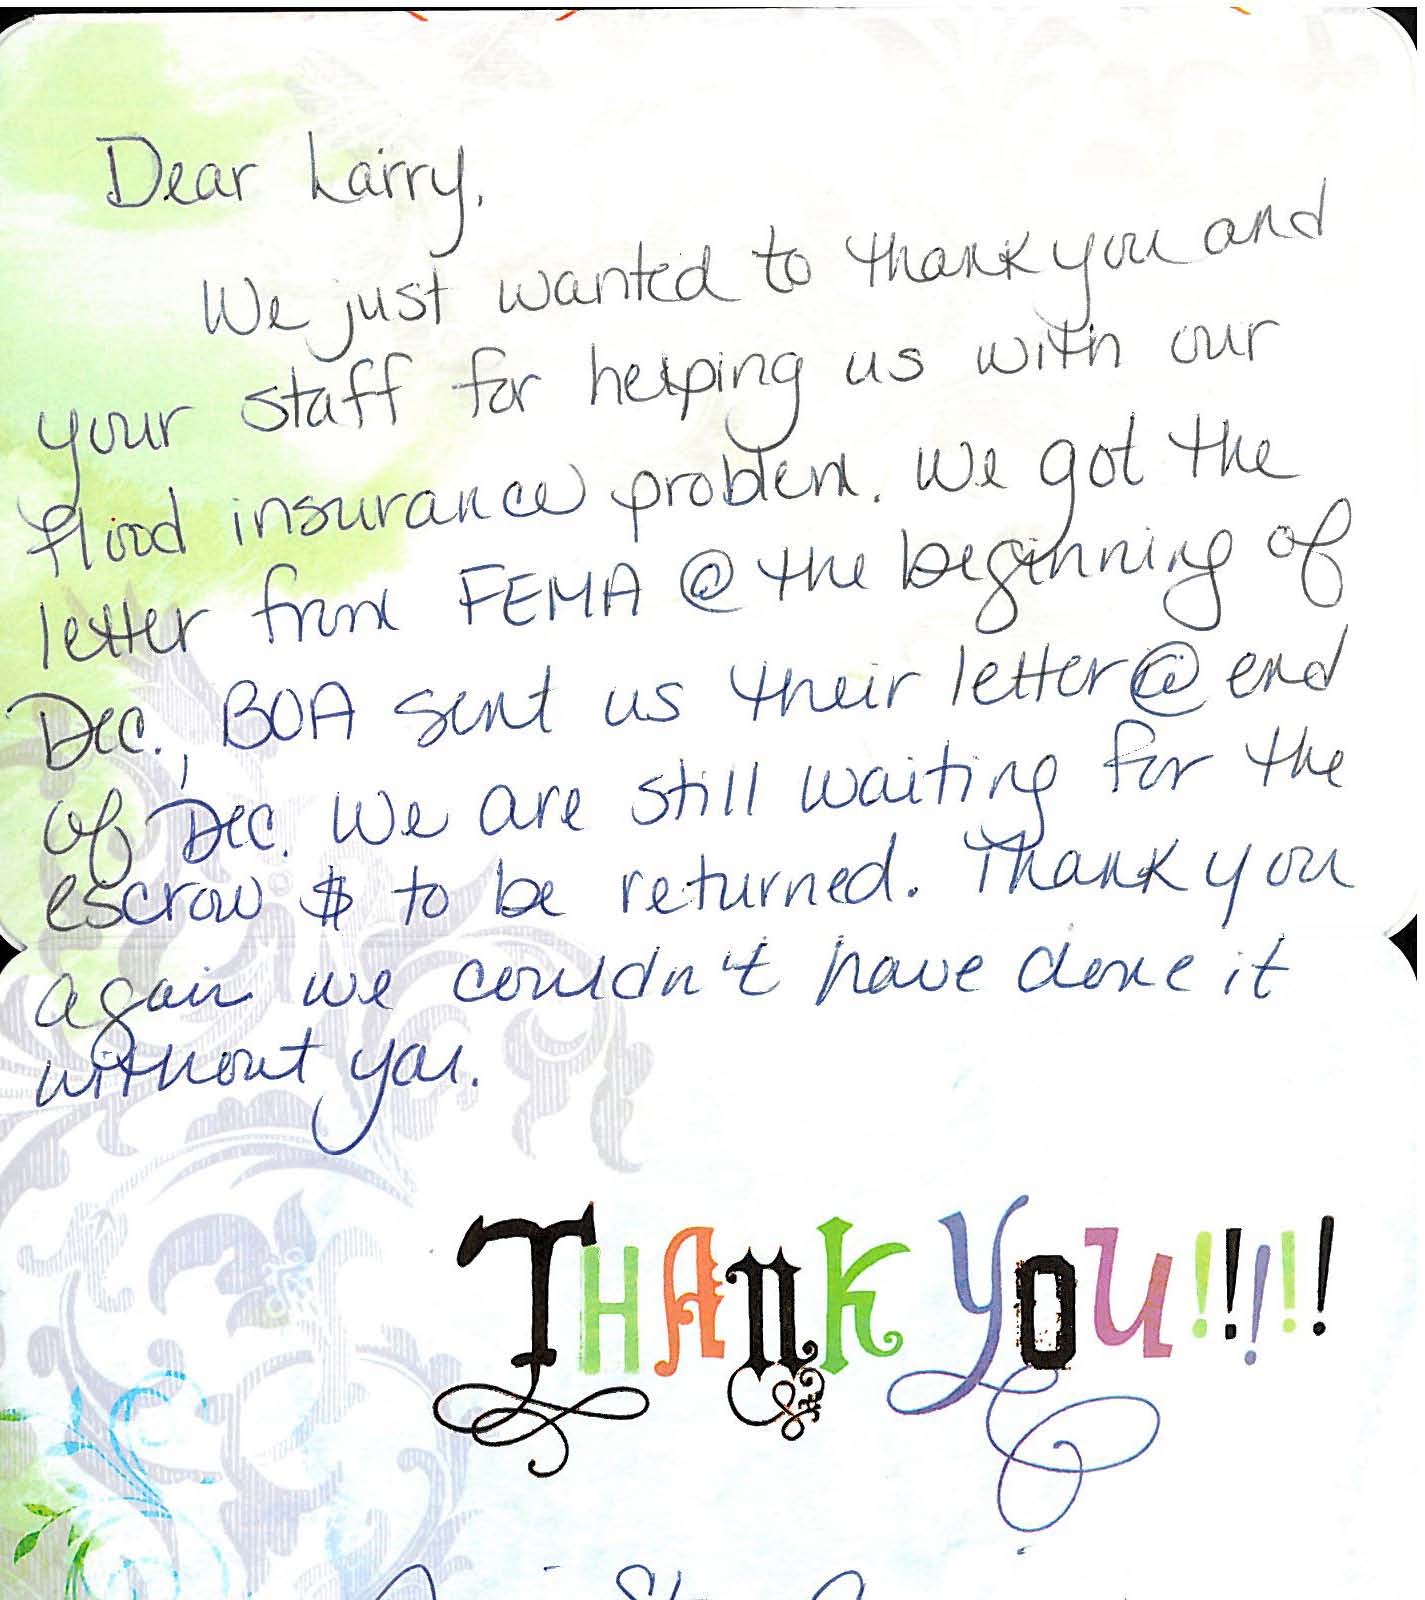 Dear Lairry,
We just wanted to thank you and
your staff for helping us with our
flood insurance problem. We got the
letter from FEMA @ the beginning of
Dec., BOA sent us their letter @ end
of Dec. We are still waiting for the
escrow $ to be returned. Thank you
again we couldn't have done it
without you.
THANK YOU!!!!!